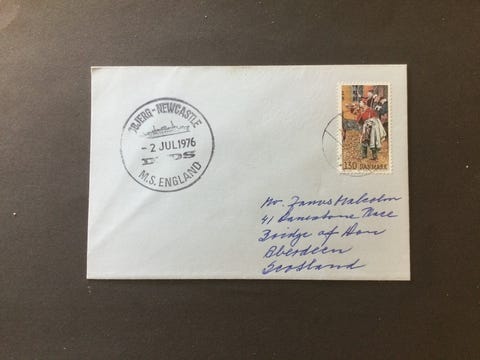 JBJERG-NEWCASTLE
- 2 JUL 1976
DFDS
M.S. ENGLAND
130 DANMARK
Mr. Malcolm
41 Danestone Place
Bridge of Don
Aberdeen
Scotland